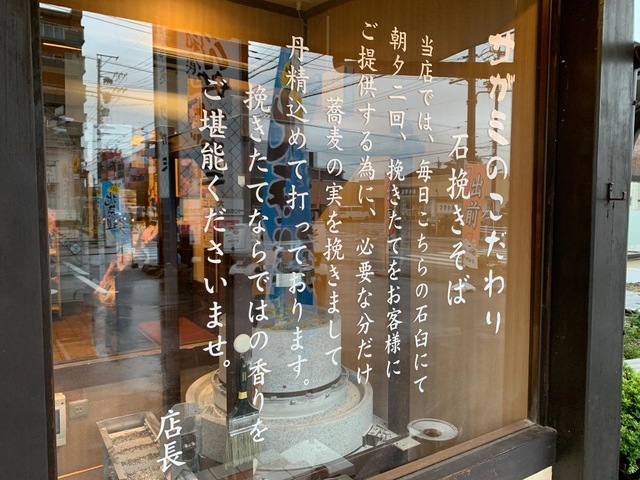 サガミのこだわり
石挽きそば
当店では、毎日こちらの石臼にて
朝夕二回、挽きたてをお客様に
ご提供する為に、必要な分だけ
蕎麦の実を挽きまして
丹精込めて打っております。
挽きたてならではの香りを
ご堪能くださいませ。
店長
出前